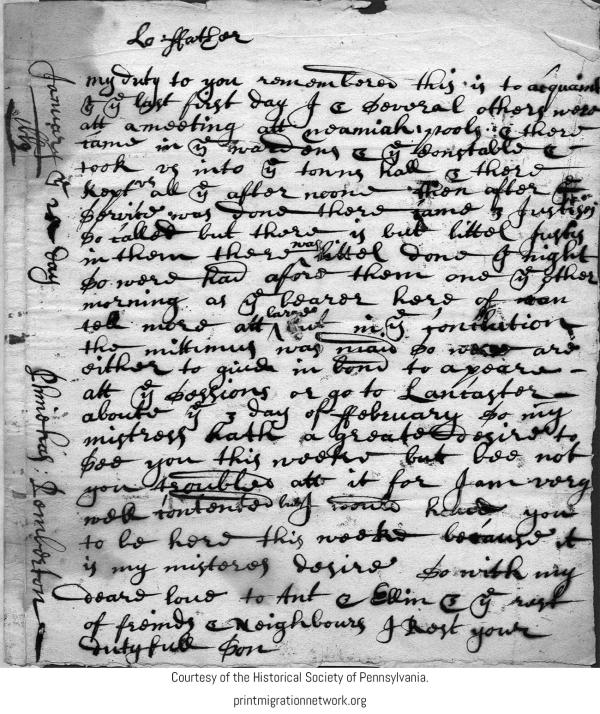 Lo: ffather
my duty to you remembered this is to acquaint
yt ye last first day I & severall others were
att a meeting att neamiah pools: & there
came in ye wardens & ye Constable &
took us into ye touns hall & there
kept us all ye after noone then after
service was done there came 3 Justises
so called but there is but littel justis
in them there was littel done yt night
so were had afore them one ye other
morning as ye bearer here of can
tell more att large but in ye conclution
the mittimus was maid so were are
either to give in bond to apeare
att ye Sessions or go to Lancaster
aboute ye 3 day of ffebruary so my
mistress hath a greate desire to
see you this weeke but bee not
you troubled att it for I am very
well contented but I would have you
to be here this weeke because it
is my misteres desire so with my
deare love to Ant & Ellin & ye rest
of freinds & Neighbours I Rest your
dutyfull Son
January ye 2 day
Phinehas: Pemberton
Courtesy of the Historical Society of Pennsylvania.
printmigrationnetwork.org